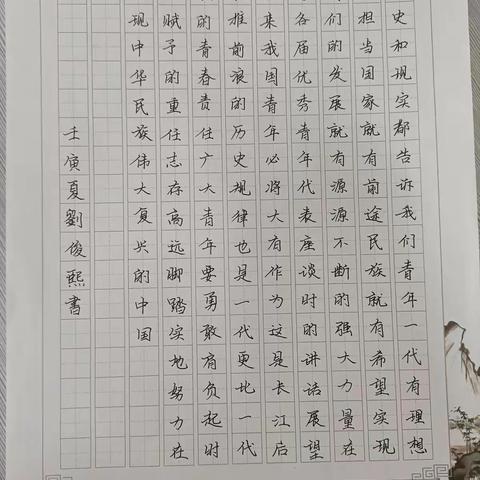 史和现实都告诉我们青年一代有理想
担当国家就有前途民族就有希望实现
们的发展就有源源不断的强大力量在
各届优秀青年代表座谈时的讲话展望
来我国青年必将大有作为这是长江后
推前浪的历史规律也是一代更比一代
的青春责任广大青年要勇敢肩负起时
赋予的重任志存高远脚踏实地努力在
现中华民族伟大复兴的中国
壬寅夏劉俊熙書